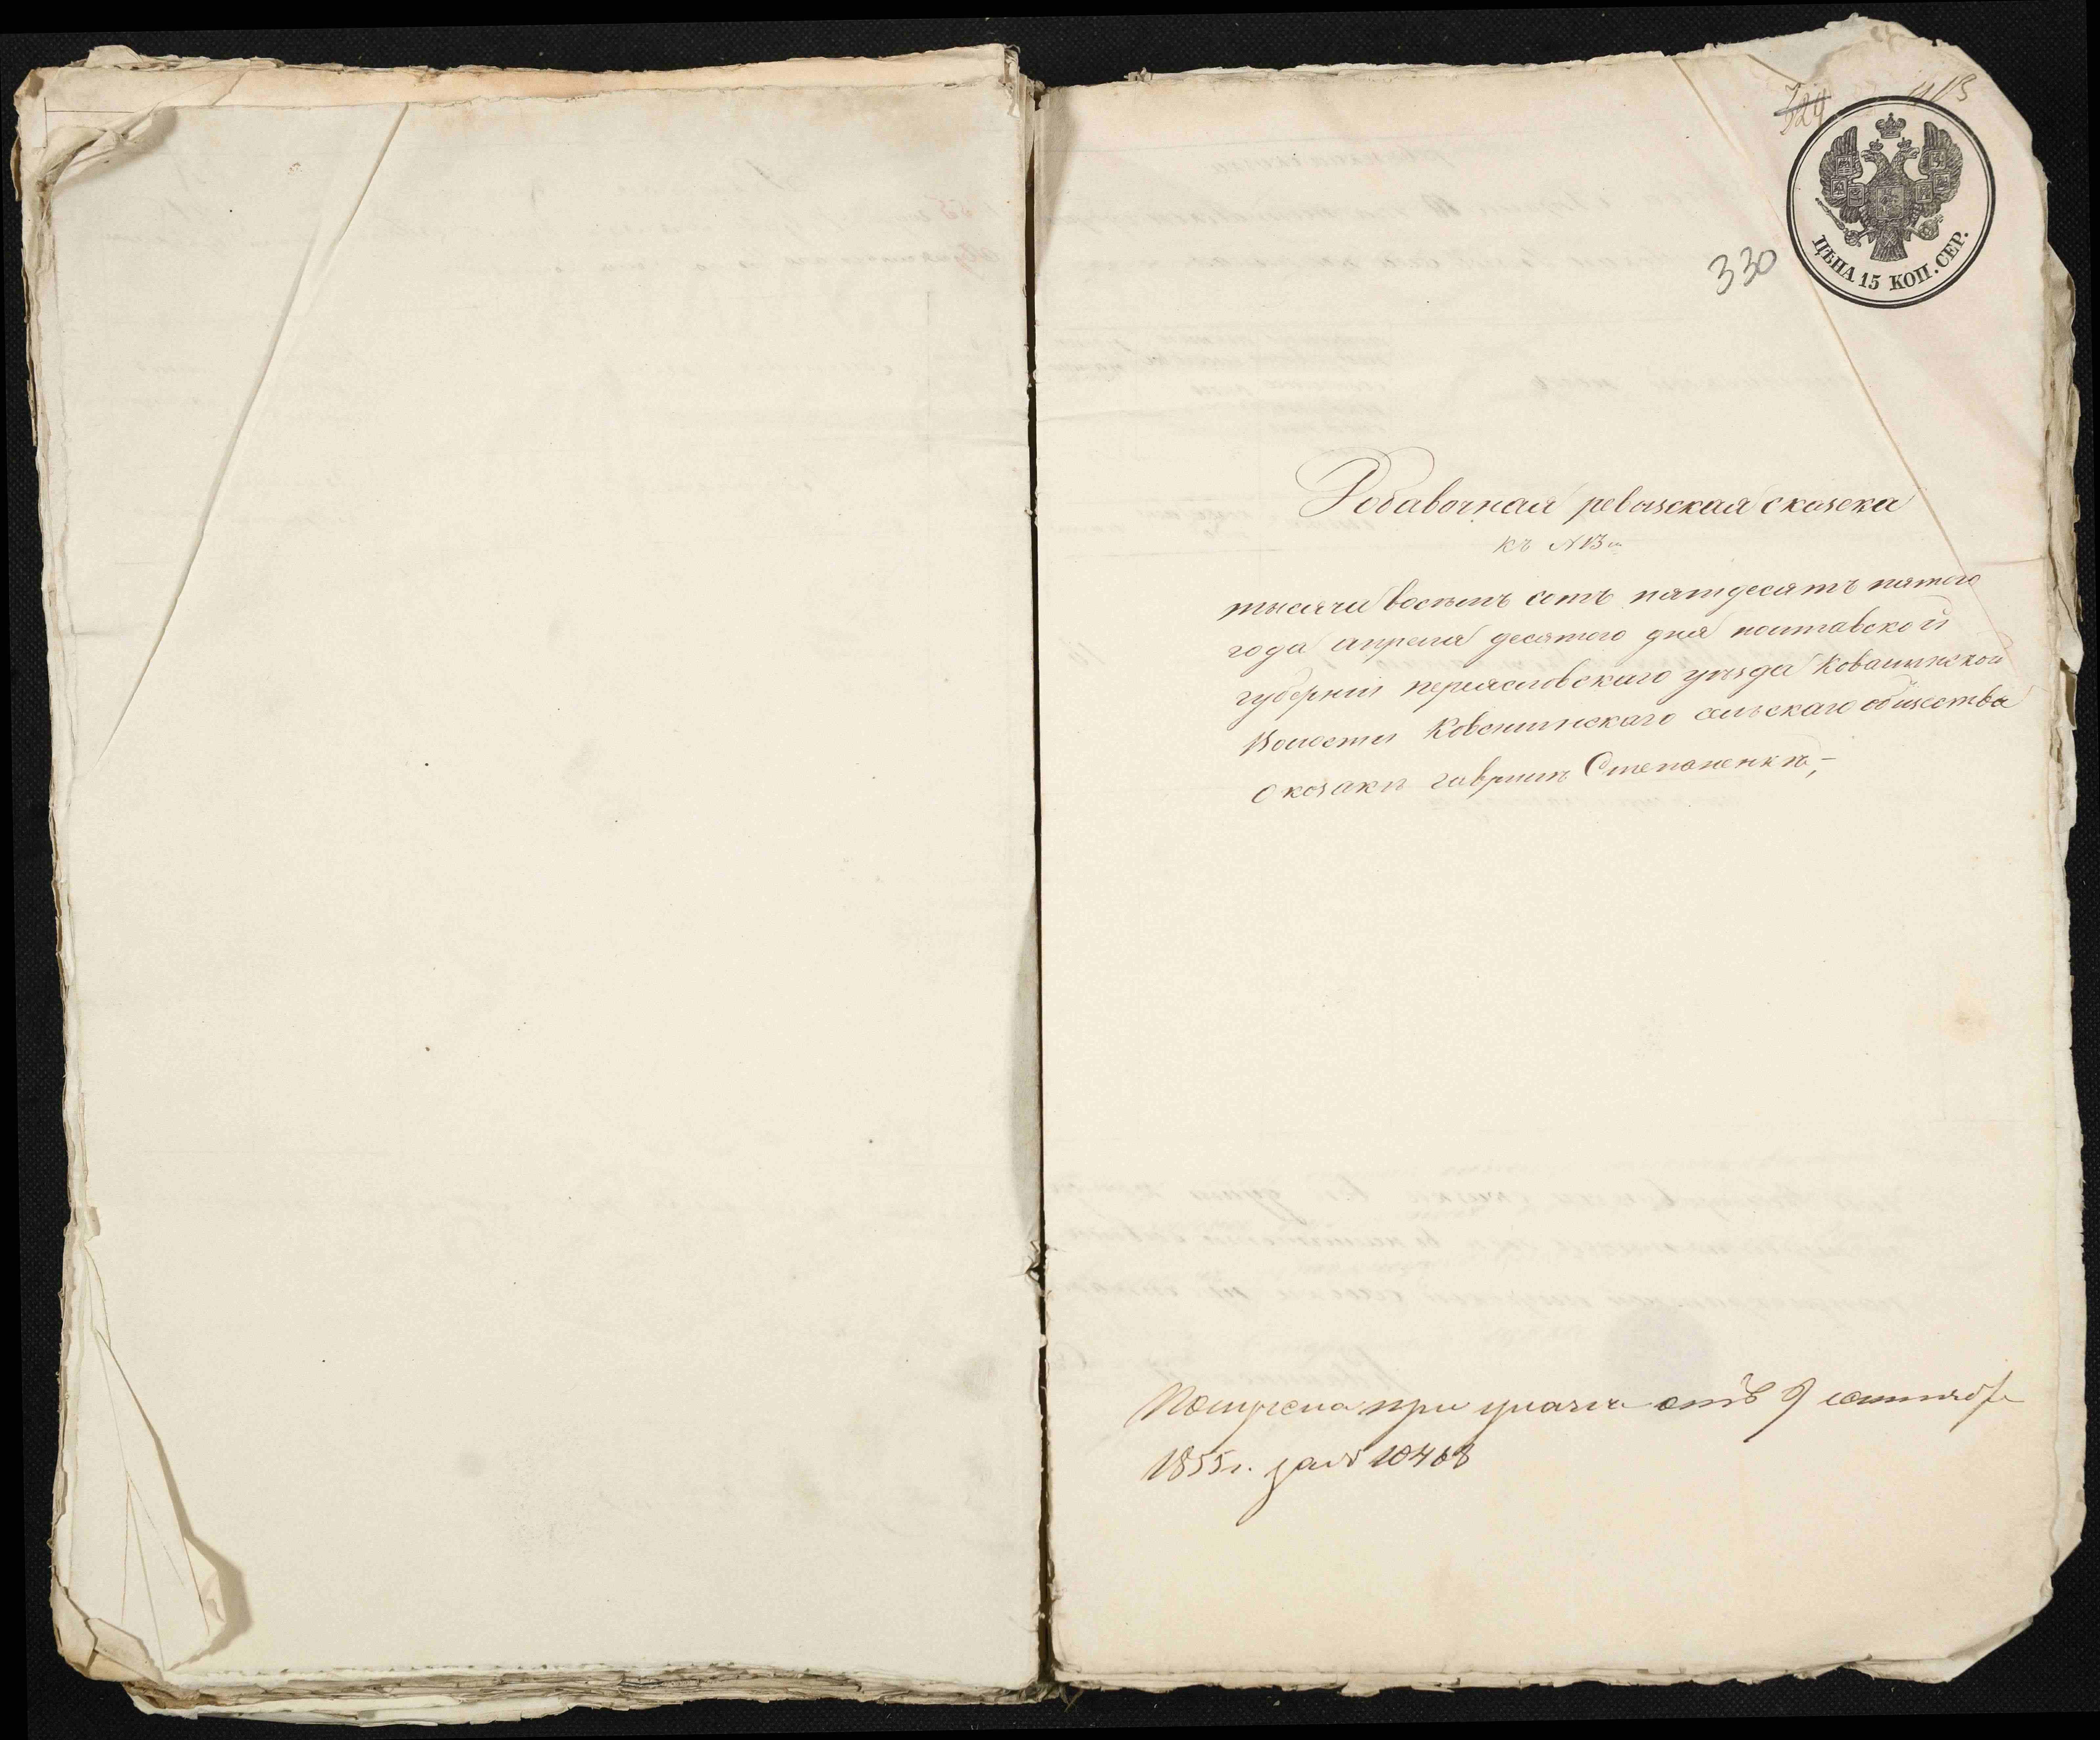 413
329
330
ЦѢНА 15 КОП. СЕР.
Добавочная ревизская сказка
къ №13 м
тысяча восемь сотъ пятдесятъ пятого
года апреля десятого дня полтавской
губерніи переясловскаго уѣзда Ковалинской
Волости Ковалинскаго сельскаго общества
о козакѣ гаврилѣ Степаненкѣ,-
Получена при указе отъ 9 сентября
1855г. за № 10468